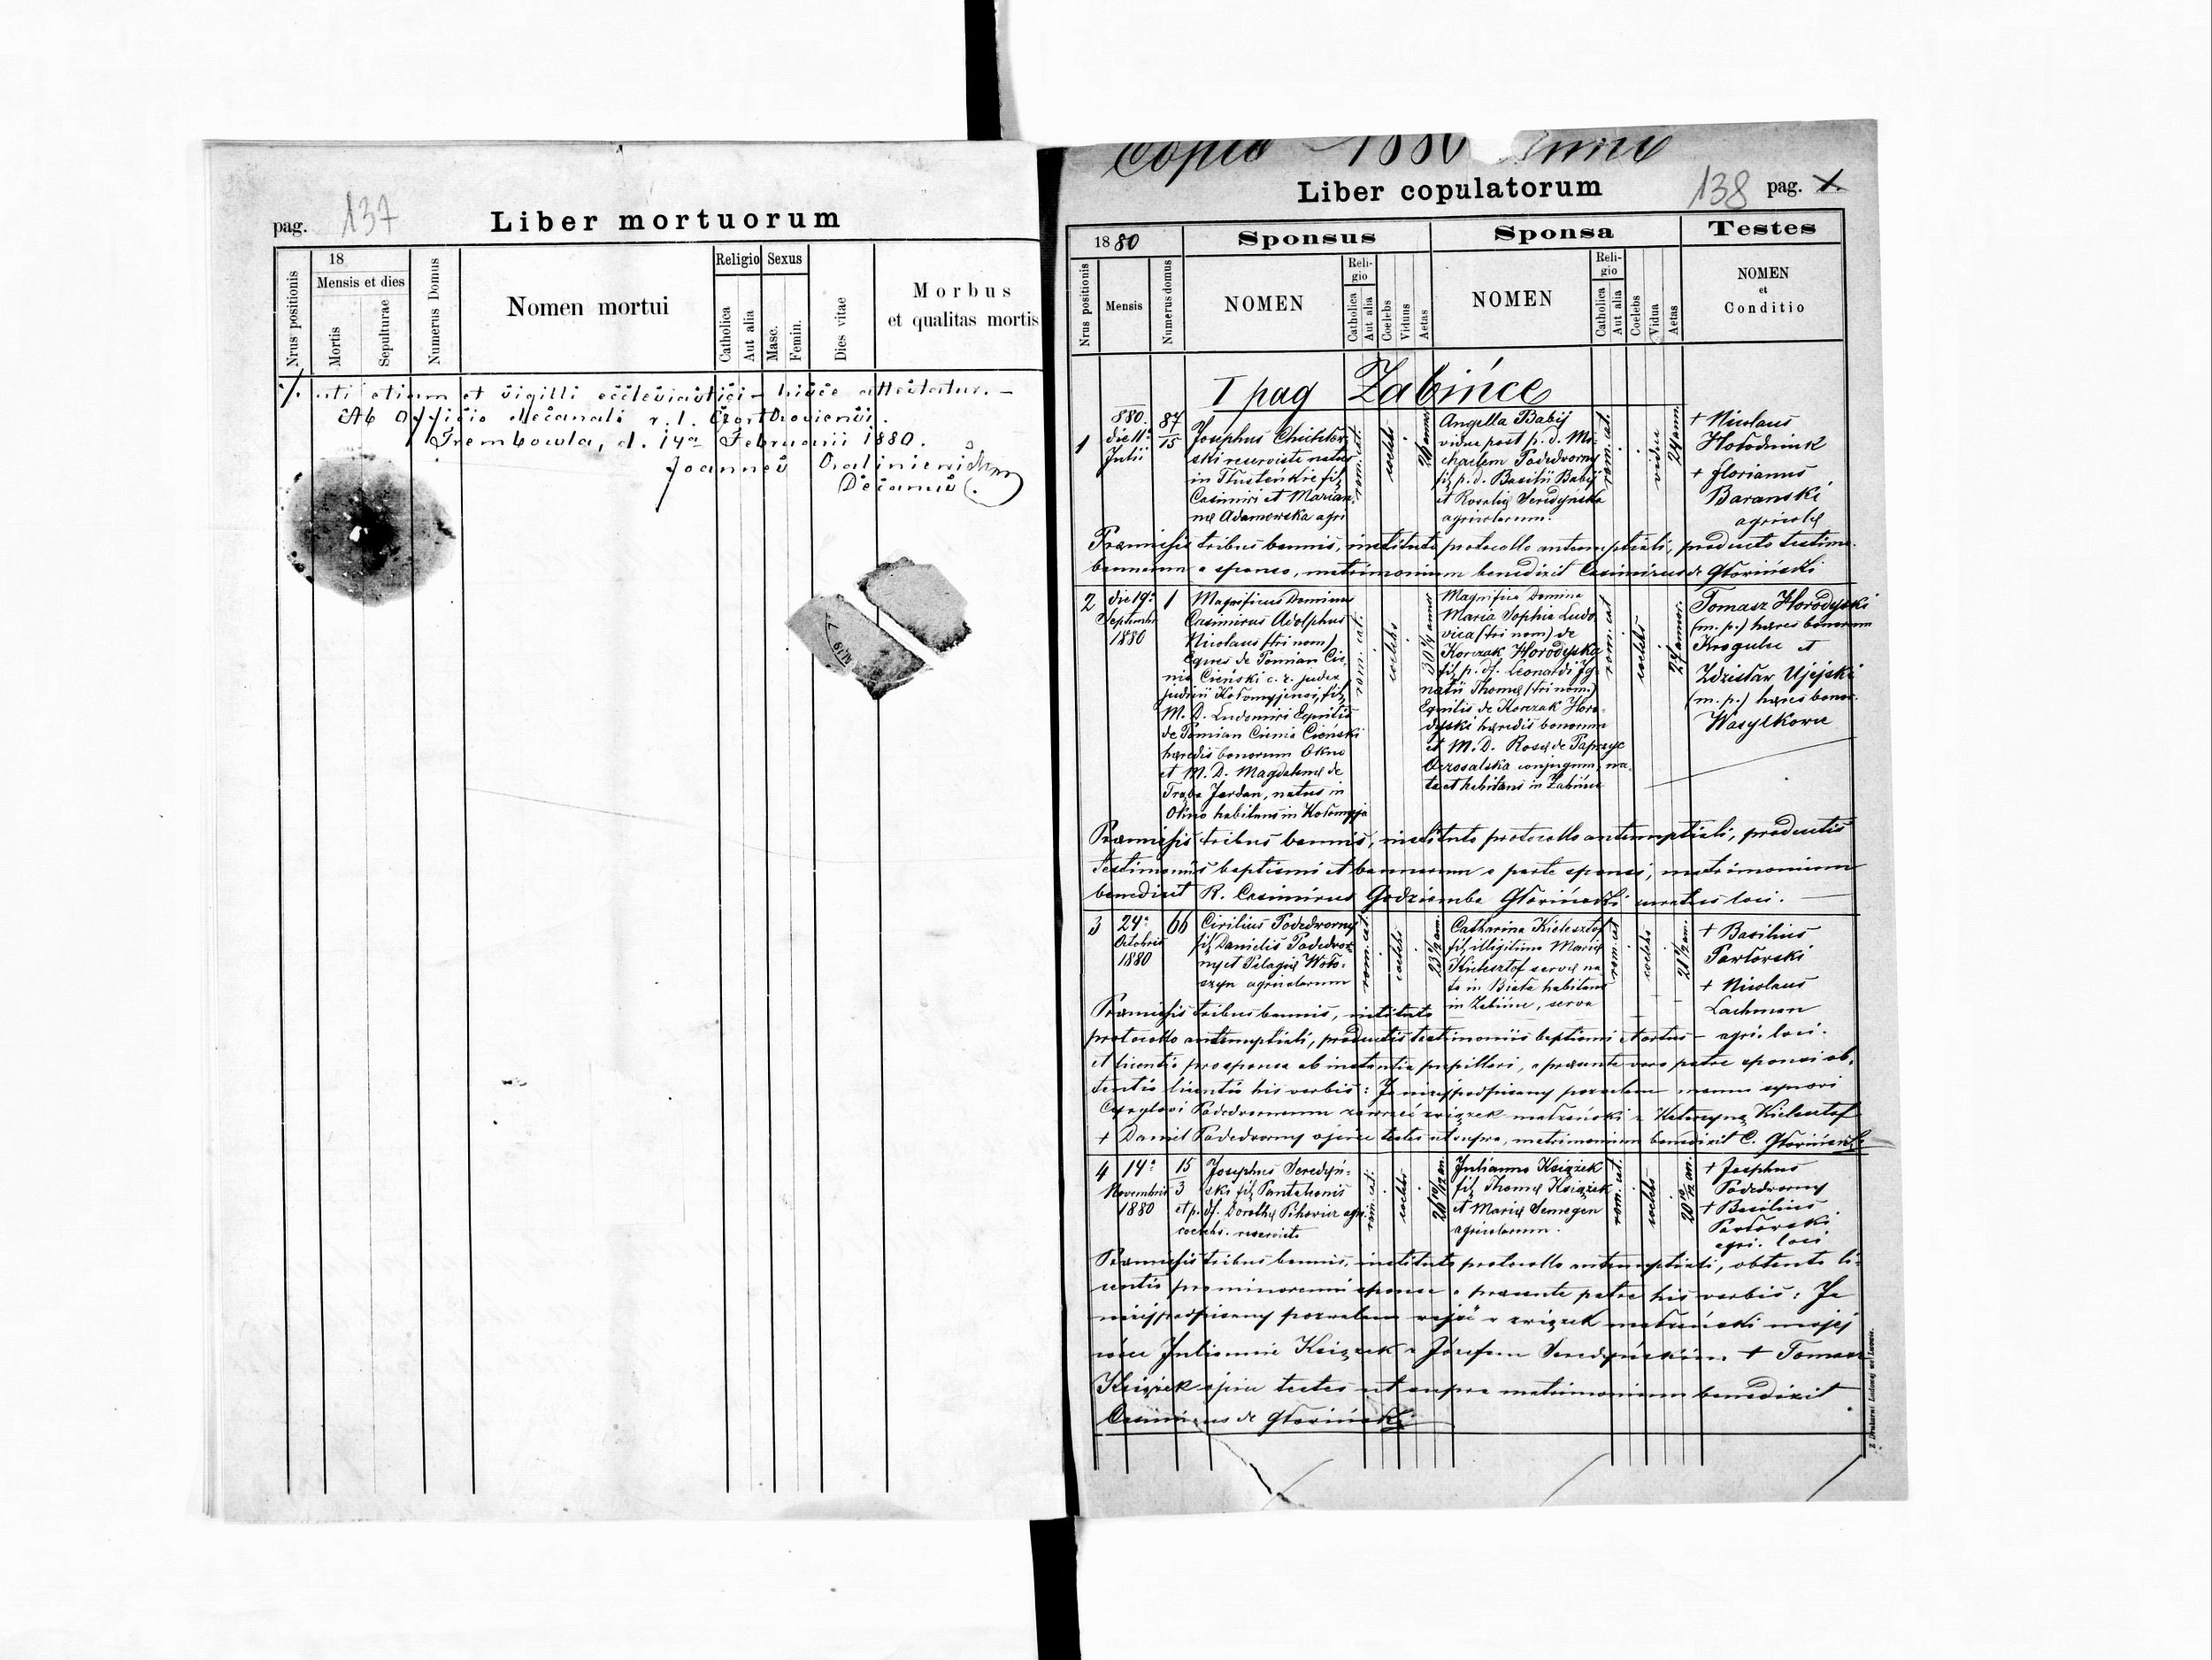 pag. 137
Liber mortuorum
Nrus positionis
18
Mensis et dies
Mortis
Sepulturae
Numerus Domus
Nomen mortui
Religio
Catholica
Aut alia
Sexus
Masc.
Femin.
Dies vitae
Morbus
et qualitas mortis
uti etiam et sigilli ecclesiastici hisce attestatur. —
Ab Officio decanali r. l. Czortkoviensi.
Trembowla, d. 14a Februarii 1880.
Joannes
Decanus
Copia 1880 Anni
Liber copulatorum
138 pag.
Nrus positionis
1880
Mensis
Numerus domus
Sponsus
NOMEN
Reli-
gio
Catholica
Aut alia
Coelebs
Viduus
Aetas
Sponsa
NOMEN
Reli-
gio
Catholica
Aut alia
Coelebs
Vidua
Aetas
Testes
NOMEN
et
Conditio
I pag Zabińce
1
880.
die 11a
Julii
87
15
Josephus
ski reservista natus
in Tłusteńkie fil.
Casimiri et Marian
næ Adamowska agri
rom. cat.
coelebs
Angella Babij
vidua post p. d. Mi-
chaelem Podedworny
fil. p. d. Basilii Babij
et Rosaliæ Seredyńska
agricolarum.
rom. cat.
vidua
24 ann.
+ Nicolaus
Hołodniuk
+ Florianus
Baranski
agricolæ
Præmissis tribus bannis, instituto protocollo antenuptiali, producto testimo.
bannorum a sponso, matrimonium benedixit Casimirus de Głoviński
2
die 19a
Septembr
1880
1
Magnificus Dominus
Casimirus Adolphus
Nicolaus (tri nom)
Eques de Pomian Cie-
nia Cieński c. r. judex
judicii Kołomyjensi, fil.
M. D. Ludomiri Equitis
de Pomian Cienia Cieński
hæredis bonorum Okno
et M. D. Magdalenæ de
Trąba Jordan, natus in
Okno habitans in Kołomyja
rom. cat.
coelebs
Magnifica Domina
Maria Sophia Ludo
vica (tri nom) de
Korczak Horodyska
fil. p. df. Leonardi Ig-
natii Thomæ (tri nom.)
Equitis de Korczak Horo-
dyski hæredis bonorum
et M. D. Rosæ de Paprzyc
conjugum, na-
ta et habitans in Zabińce
rom. cat
coelebs
27 annor.
Tomasz Horodyski
(m. p.) hæres bonorum
Krogulec et
Zdzisław Ujejski
(m. p.) hæres bonor.
Wasylkowce
Præmissis tribus bannis, instituto protocollo antenuptiali, productis
testimoniis baptismi et bannorum a parte sponsi, matrimonium
benedixit R. Casimirus Godziemba Głoviński curatus loci. —
3
24a
Octobris
1880
66
Cirilius Podedworny
fil. Danielis Podedwor
ny et Pelagiæ Woło-
szyn agricolarum
rom. cat.
coelebs
23 1/2 an.
Catharina Kielesztof
fil. illigitima Mariæ
Kielesztof servæ na-
ta in Biała habitans
in Zabińce, serva
rom. cat
coelebs
21 1/2 an.
+ Basilius
Pawłorski
+ Nicolaus
Lachman
agri. loci.
Præmissis tribus bannis, instituto
protocollo antenuptiali, productis testimoniis baptismi et ortus —
et licentia pro sponsa ab instantia pupillari, a præsente vero patre sponsi ob-
tenta licentia his verbis: Ja niżej podpisany pozwalam memu synowi
Cyrylowi Podedwornemu zawrzeć związek małżeński z Katarzyną Kielesztof
+ Daniel Podedworny ojciec testes ut supra, matrimonium benedixit C. Głoviński
4
14a
Novembris
1880
15
3
Josephus Seredyń-
ski fil. Pantalionis
et p. df. Dorotheæ agri.
coelebs. reservista
rom. cat.
coelebs
26 10/12 an.
Julianna Książek
fil. Thomæ Książek
et Mariæ Semegen
agricolarum.
rom. cat.
coelebs
20 10/12 an.
+ Josephus
Podedworny
+ Basilius
Pawłorski
agri. loci
Præmissis tribus bannis, instituto protocollo antenuptiali, obtenta li-
centia pro minorenni sponsa a præsente patre his verbis: Ja
niżej podpisany pozwalam wejść w związek małżeński mojej
córce Juliannie Książek z Józefem Seredyńskim. + Tomasz
Książek ojciec testes ut supra matrimonium benedixit
Casimirus de Głoviński
Z Drukarni Ludowej we Lwowie.